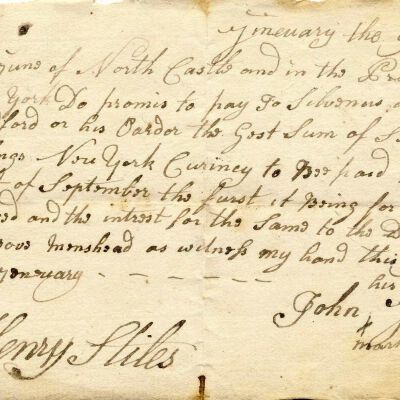 Jineuary the
June of North Castle and in the Pro
York Do promis to pay To Silvenus
ford or his Oardor the Gest Sum of S
ings New York Curincy to Bee paid
of September the furst it Being for
ed and the intrest for the Same to the D
bove menshead as witness my hand this
Jeneuary
his
John
mark
Henry Stiles